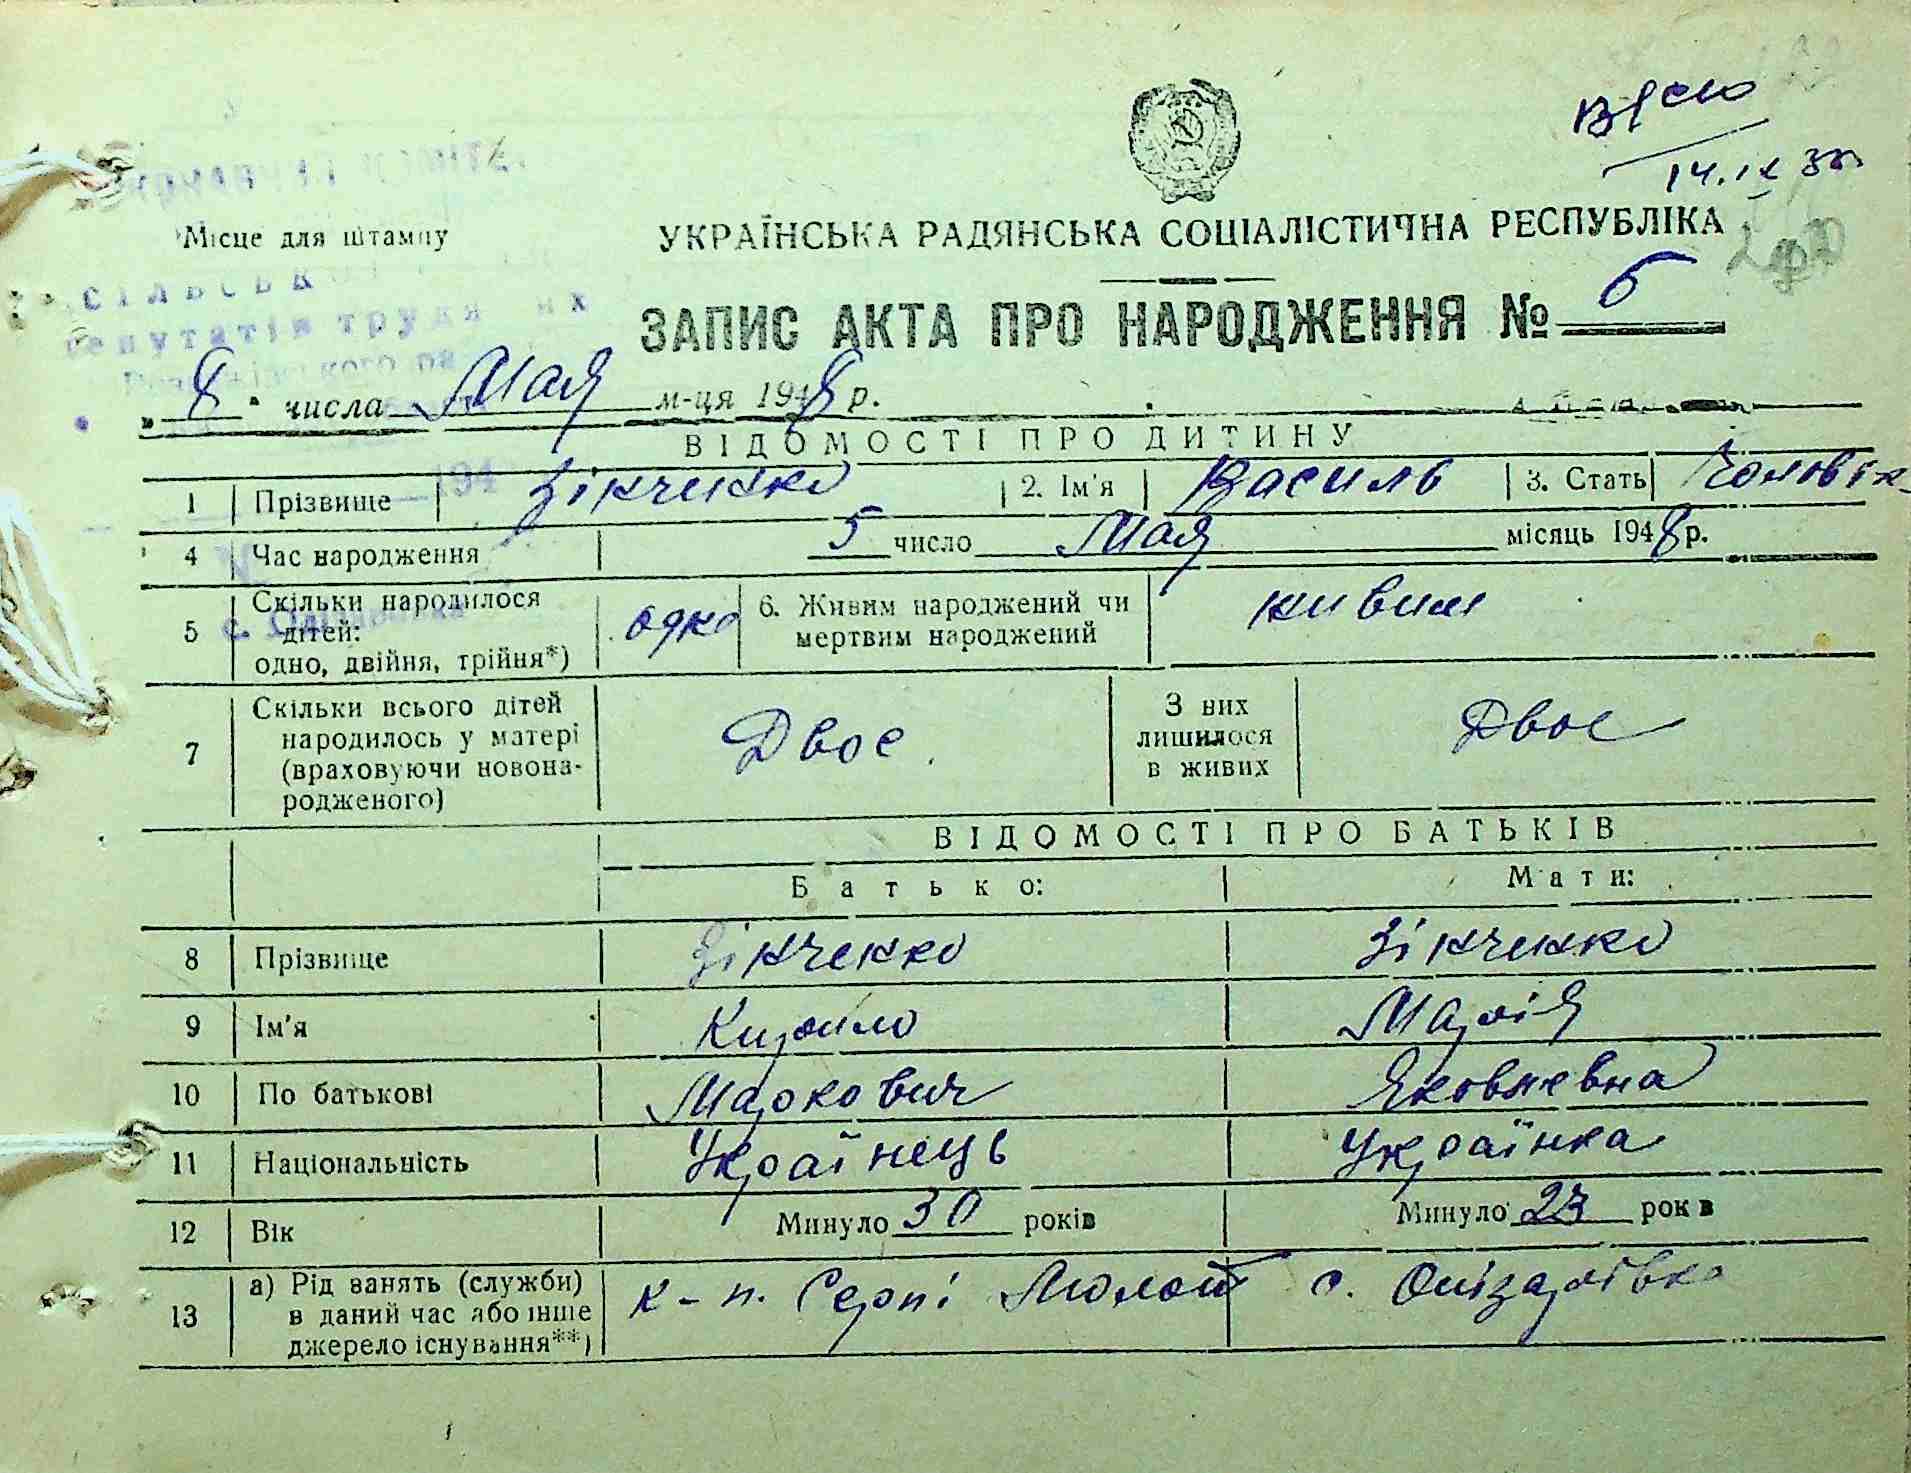 Місце для штампу
УКРАЇНСЬКА РАДЯНСЬКА СОЦІАЛІСТИЧНА РЕСПУБЛІКА
14.IX
ЗАПИС АКТА ПРО НАРОДЖЕННЯ № 6
сільської
депутатів трудящих
„8“ числа Мая м-ця 1948 р.
ВІДОМОСТІ ПРО ДИТИНУ
194
1 Прізвище Зінченко 2. Ім'я Василь 3. Стать Чоловік
4 Час народження 5 число Мая місяць 1948 р.
5 Скільки народилося дітей: одно, двійня, трійня*) одно 6. Живим народжений чи мертвим народжений живим
7 Скільки всього дітей народилось у матері (враховуючи новонародженого) Двоє З них лишилося в живих Двоє
ВІДОМОСТІ ПРО БАТЬКІВ
Батько: Мати:
8 Прізвище Зінченко Зінченко
9 Ім'я Кирило Марія
10 По батькові Маркович Яковлевна
11 Національність Українець Українка
12 Вік Минуло 30 років Минуло 23 років
13 а) Рід занять (служби) в даний час або інше джерело існування**) к-п. Серп і Молот с.